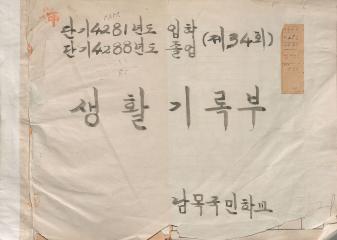 단기4281년도 입학
단기4288년도 졸업 (제34회)
생활기록부
남목국민학교